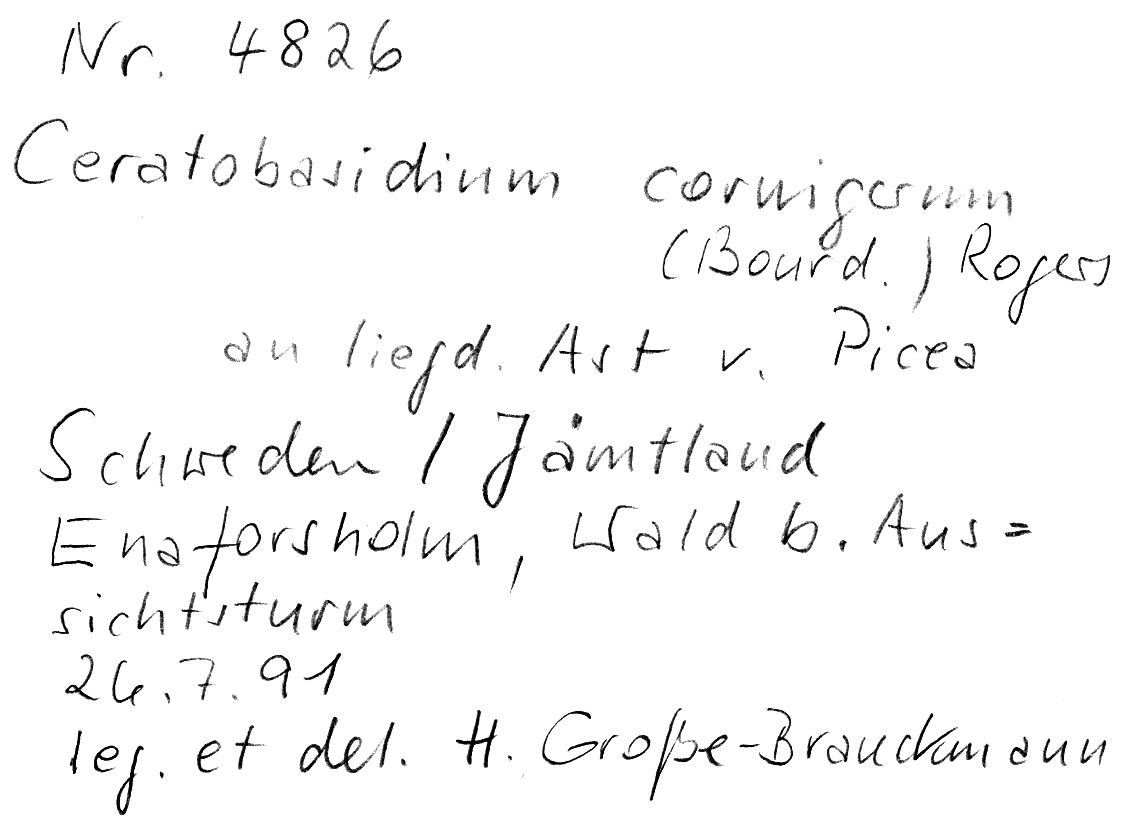 Nr. 4826
Ceratobasidium cornigerum
(Bourd.) Rogers
an liegd. Ast v. Picea
Schweden / Jämtland
Enaforsholm, Wald b. Aus=
sichtsturm
26.7.91
leg. et det. H. Große-Brauckmann